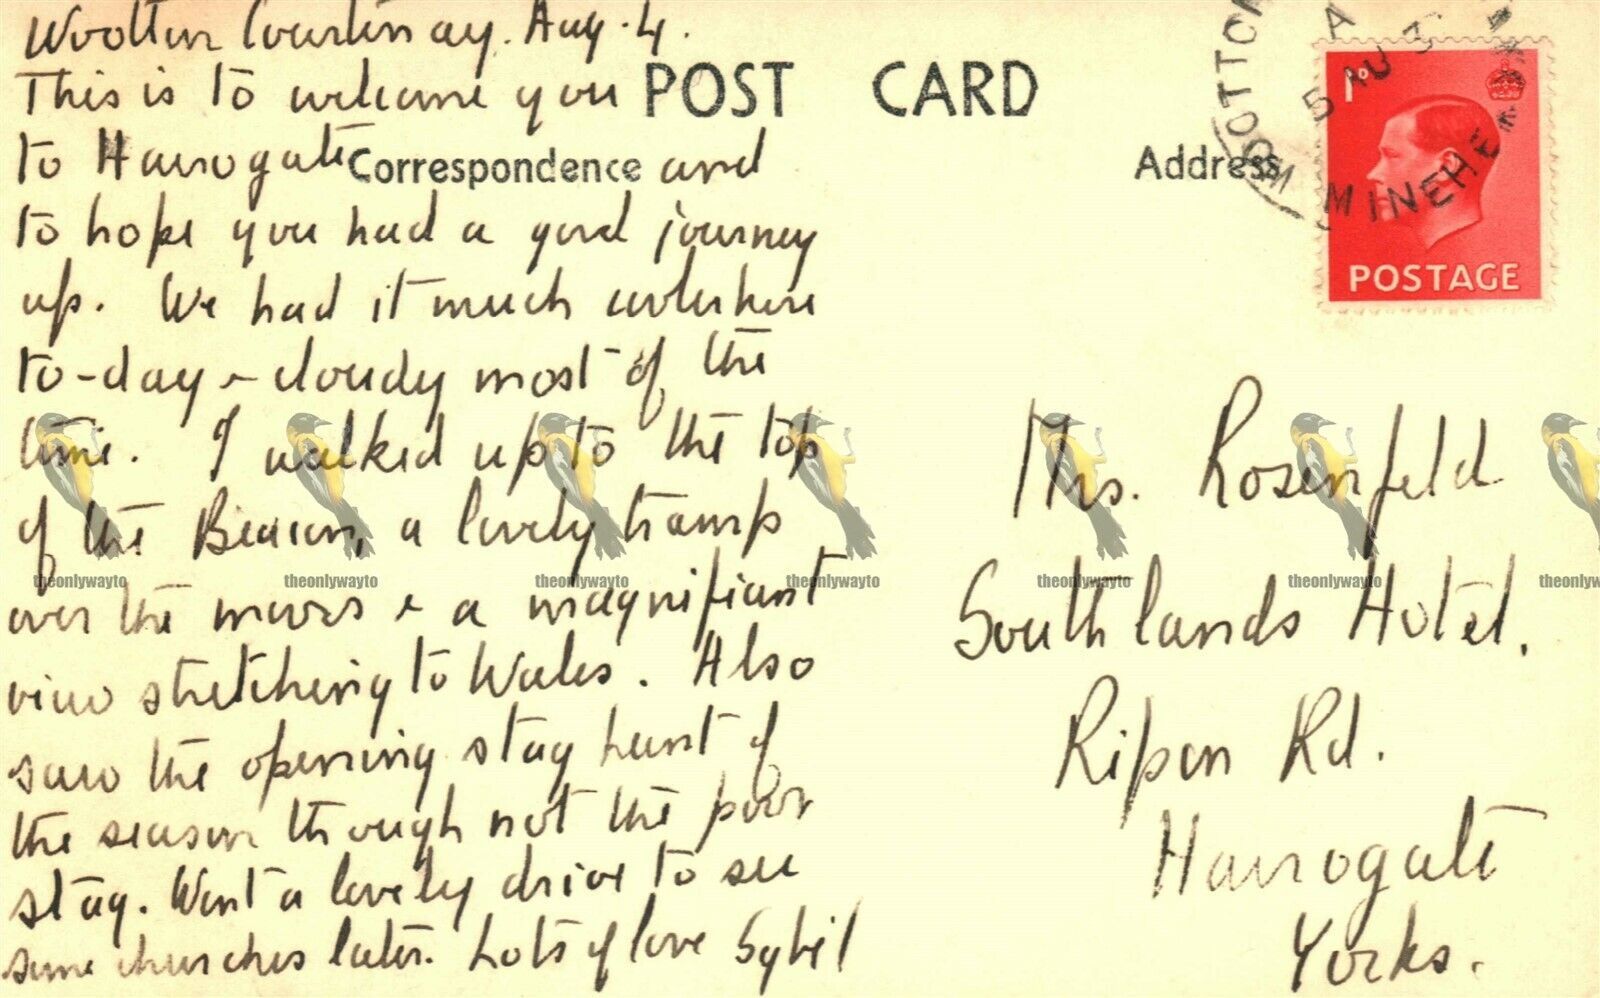 Wootton Courtenay. Aug. 4.
This is to welcome you
to Harrogate and
to hope you had a good journey
up. We had it much here
to-day & cloudy most of the
time. I walked up to the top
of the Beacon, a lovely tramp
over the moors & a magnificant
view stretching to Wales. Also
saw the opening stag hunt of
the season though not the poor
stag. Went a lovely drive to see
some churches later. Lots of love Sybil
POST CARD
Correspondence
Address
WOOTTON
MINEHEAD
5 AU 3
1D
POSTAGE
Mrs. Rosenfeld
Southlands Hotel.
Ripon Rd.
Harrogate
Yorks.
theonlywayto theonlywayto theonlywayto theonlywayto theonlywayto theonlywayto theonlyw